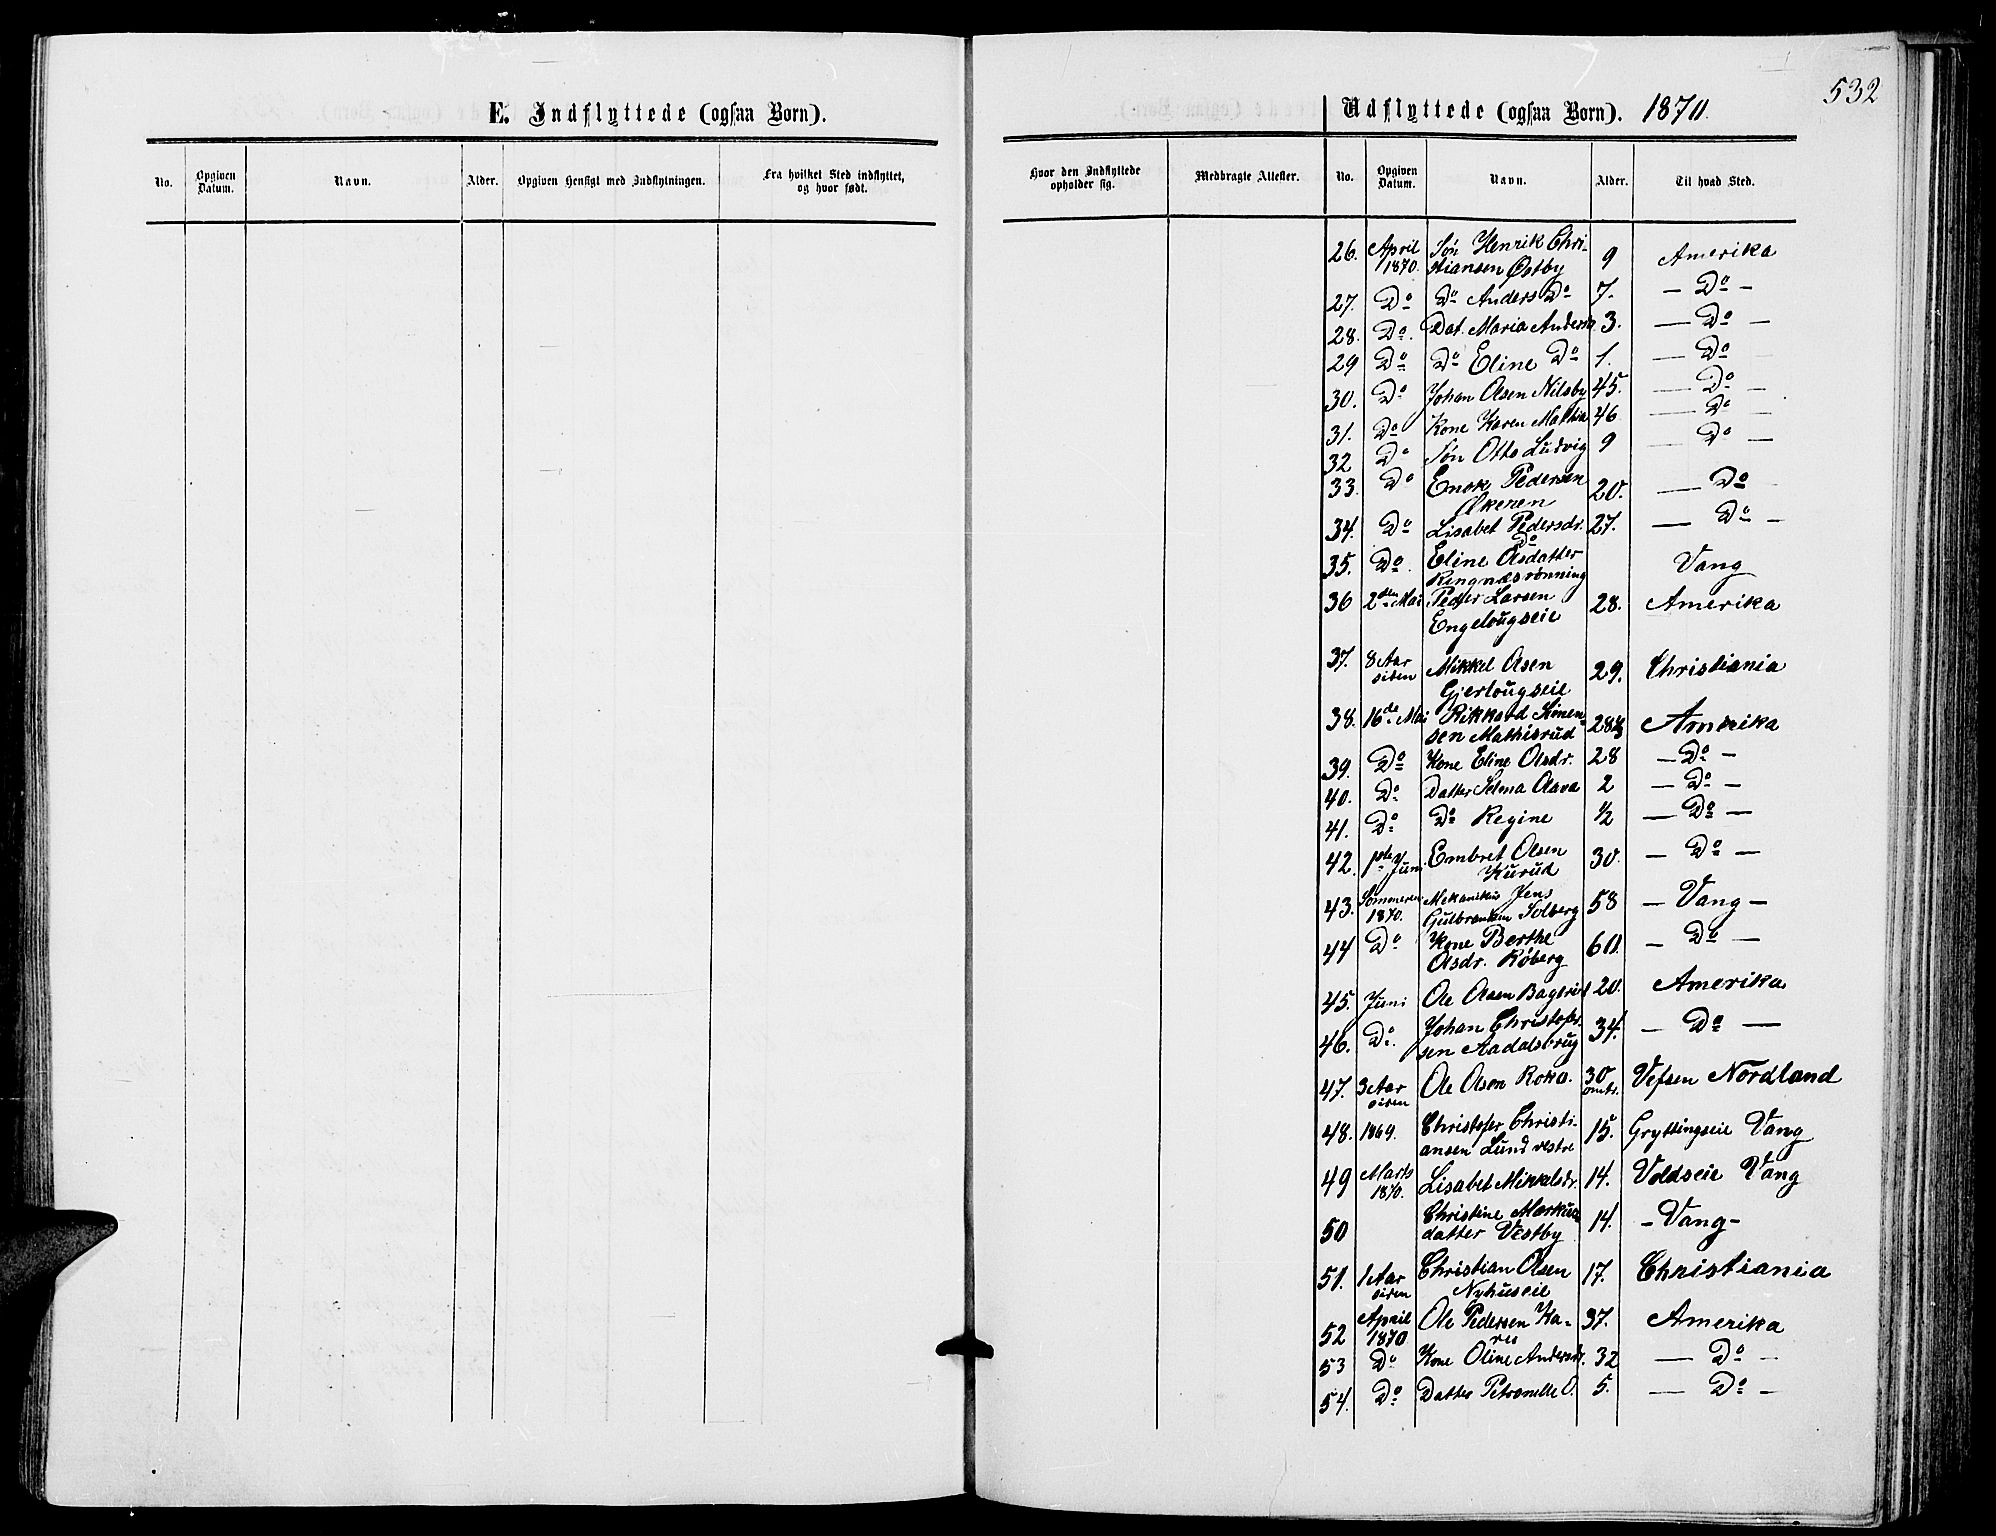 532
E. Indflyttede (ogsaa Born).
Udflyttede (ogsaa Born). 1870.
No. Opgiven Datum. Navn. Alder. Opgiven Hensigt med Indflytningen. Fra hvilket Sted indflyttet, og hvor født.
Hvor den Indflyttede opholder sig. Medbragte Attester. No. Opgiven Datum. Navn. Alder. Til hvad Sted.
26. April 1870. Søn Henrik Chri-
stiansen Østby 9 Amerika
27. Do Do Anders Do 7. — Do —
28. Do. Dat. Maria Andersd 3. — Do —
29 Do Do Eline Do 1. — Do
30. Do Johan Olsen Nilsby 45. — Do —
31. Do Kone Karen Mathia 46 — Do —
32 Do Søn Otto Ludvig 9 — Do —
33. Do Enok Pedersen
Økeren 20. — Do
34. Do Lisabet Pedersdr. 27. — Do —
Do
35. Do. Eline Olsdatter
Ringnæsrønning Vang
36 2den Mai Peder Larsen
Engelougseie 28. Amerika
37. 8 Aar siden Mikkel Olsen
Gjerlougseie 29. Christiania
38. 16de Mai Rikkard Simen-
sen Mathisrud 28½ Amerika
39. Do Kone Eline Olsdr. 28 — Do —
40. Do Datter Selma Olava 2 — Do —
41. Do Do Regine ½ — Do —
42. 1ste Juni Embret Olsen
Kurud 30. — Do —
43. Sommeren 1870. Mekanikus Jens
Gulbransen Solberg 58 — Vang —
44 Do Kone Berthe
Olsdr. Røberg 60. — Do —
45. Juni Ole Olsen Bagerud 20. Amerika
46. Do. Johan Christofer-
sen Aadalsbrug 34. — Do —
47. 3 Aar siden Ole Olsen Roko. 30 omtr. Vefsen Nordland
48. 1869. Christofer Christi-
ansen Lund vestre 15. Gryttingseie Vang
49 Marts 1870. Lisabet Mikkelsdr. 14. Voldseie Vang
50 Christine Markus-
datter Vestby 14. - Vang -
51. 1 Aar siden Christian Olsen
Nyhuseie 17. Christiania
52 April 1870 Ole Pedersen Ka-
res 37. Amerika
53 Do Kone Oline Andersdr. 32 — Do —
54. Do Datter Petronelle O. 5. — Do —